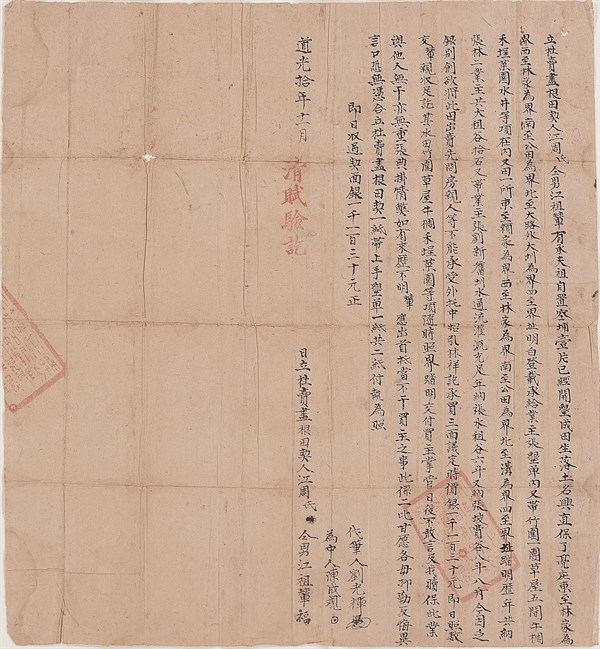 立杜賣盡根田契人江周氏仝男江祖輩有承夫祖自置空埔壹片已經開墾成田坐落土名興直保了 庄東至林家為
界西至林家為界南至公田為界北至大路외大圳為界四至界址明白登載承給業主張墾單內又帶竹圍一圍草屋五間牛稠
禾埕菜園水井等項在內又田一所東至賴家為界西至林家為界南至公田為界北至溝為界四至界址踏明歷年共納
張林二業主共大租谷拾石又帶業主張劉新舊圳水通流灌溉充足年納張水租谷六斗又納張坡費谷八斗八升今因乏
銀別創欲將此田出賣先問房親人等不能承受外托中招引林祥記承買三面議定時價銀一千一百三十元即日照數
交輩親收足訖其水田竹圍草屋牛稠禾埕菜園等項隨時照界踏明交付買主掌管日後不敢言及找贖保此業
與他人無干亦無重張典掛情獘如有來歷不明輩應出首抵當不干買主之事此係二比甘愿各毋抑勒反悔異
言口恐無憑合立杜賣盡根田契一紙帶上手墾單一紙共二紙付執為照
即日收過契面銀一千一百三十元正
清賦驗訖
代筆人劉光
為中人陳成
道光拾年十一月 日立杜賣盡根田契人江周氏
仝男江祖輩福